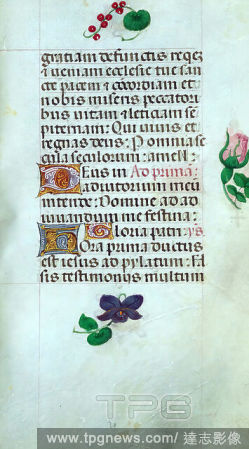 gratiam defunctis requiē
⁊ veniam ecclesie tue san
cte pacem ⁊ cōcordiam et
nobis miseris peccatorī
bus vitam ⁊ leticiam se
piternam: Qui vivis et
regnas deus: Per omnia se
cula seculorum: amen:
Deus in Ad prima:
adiutorium meū
intende: Domine ad ad
iuuandum me festina:
Gloria patri: ys
Hora prima ductus
est iesus ad pylatum: fal
sis testimonijs multum
TPG
www.tpgnews.com/ 達志影像